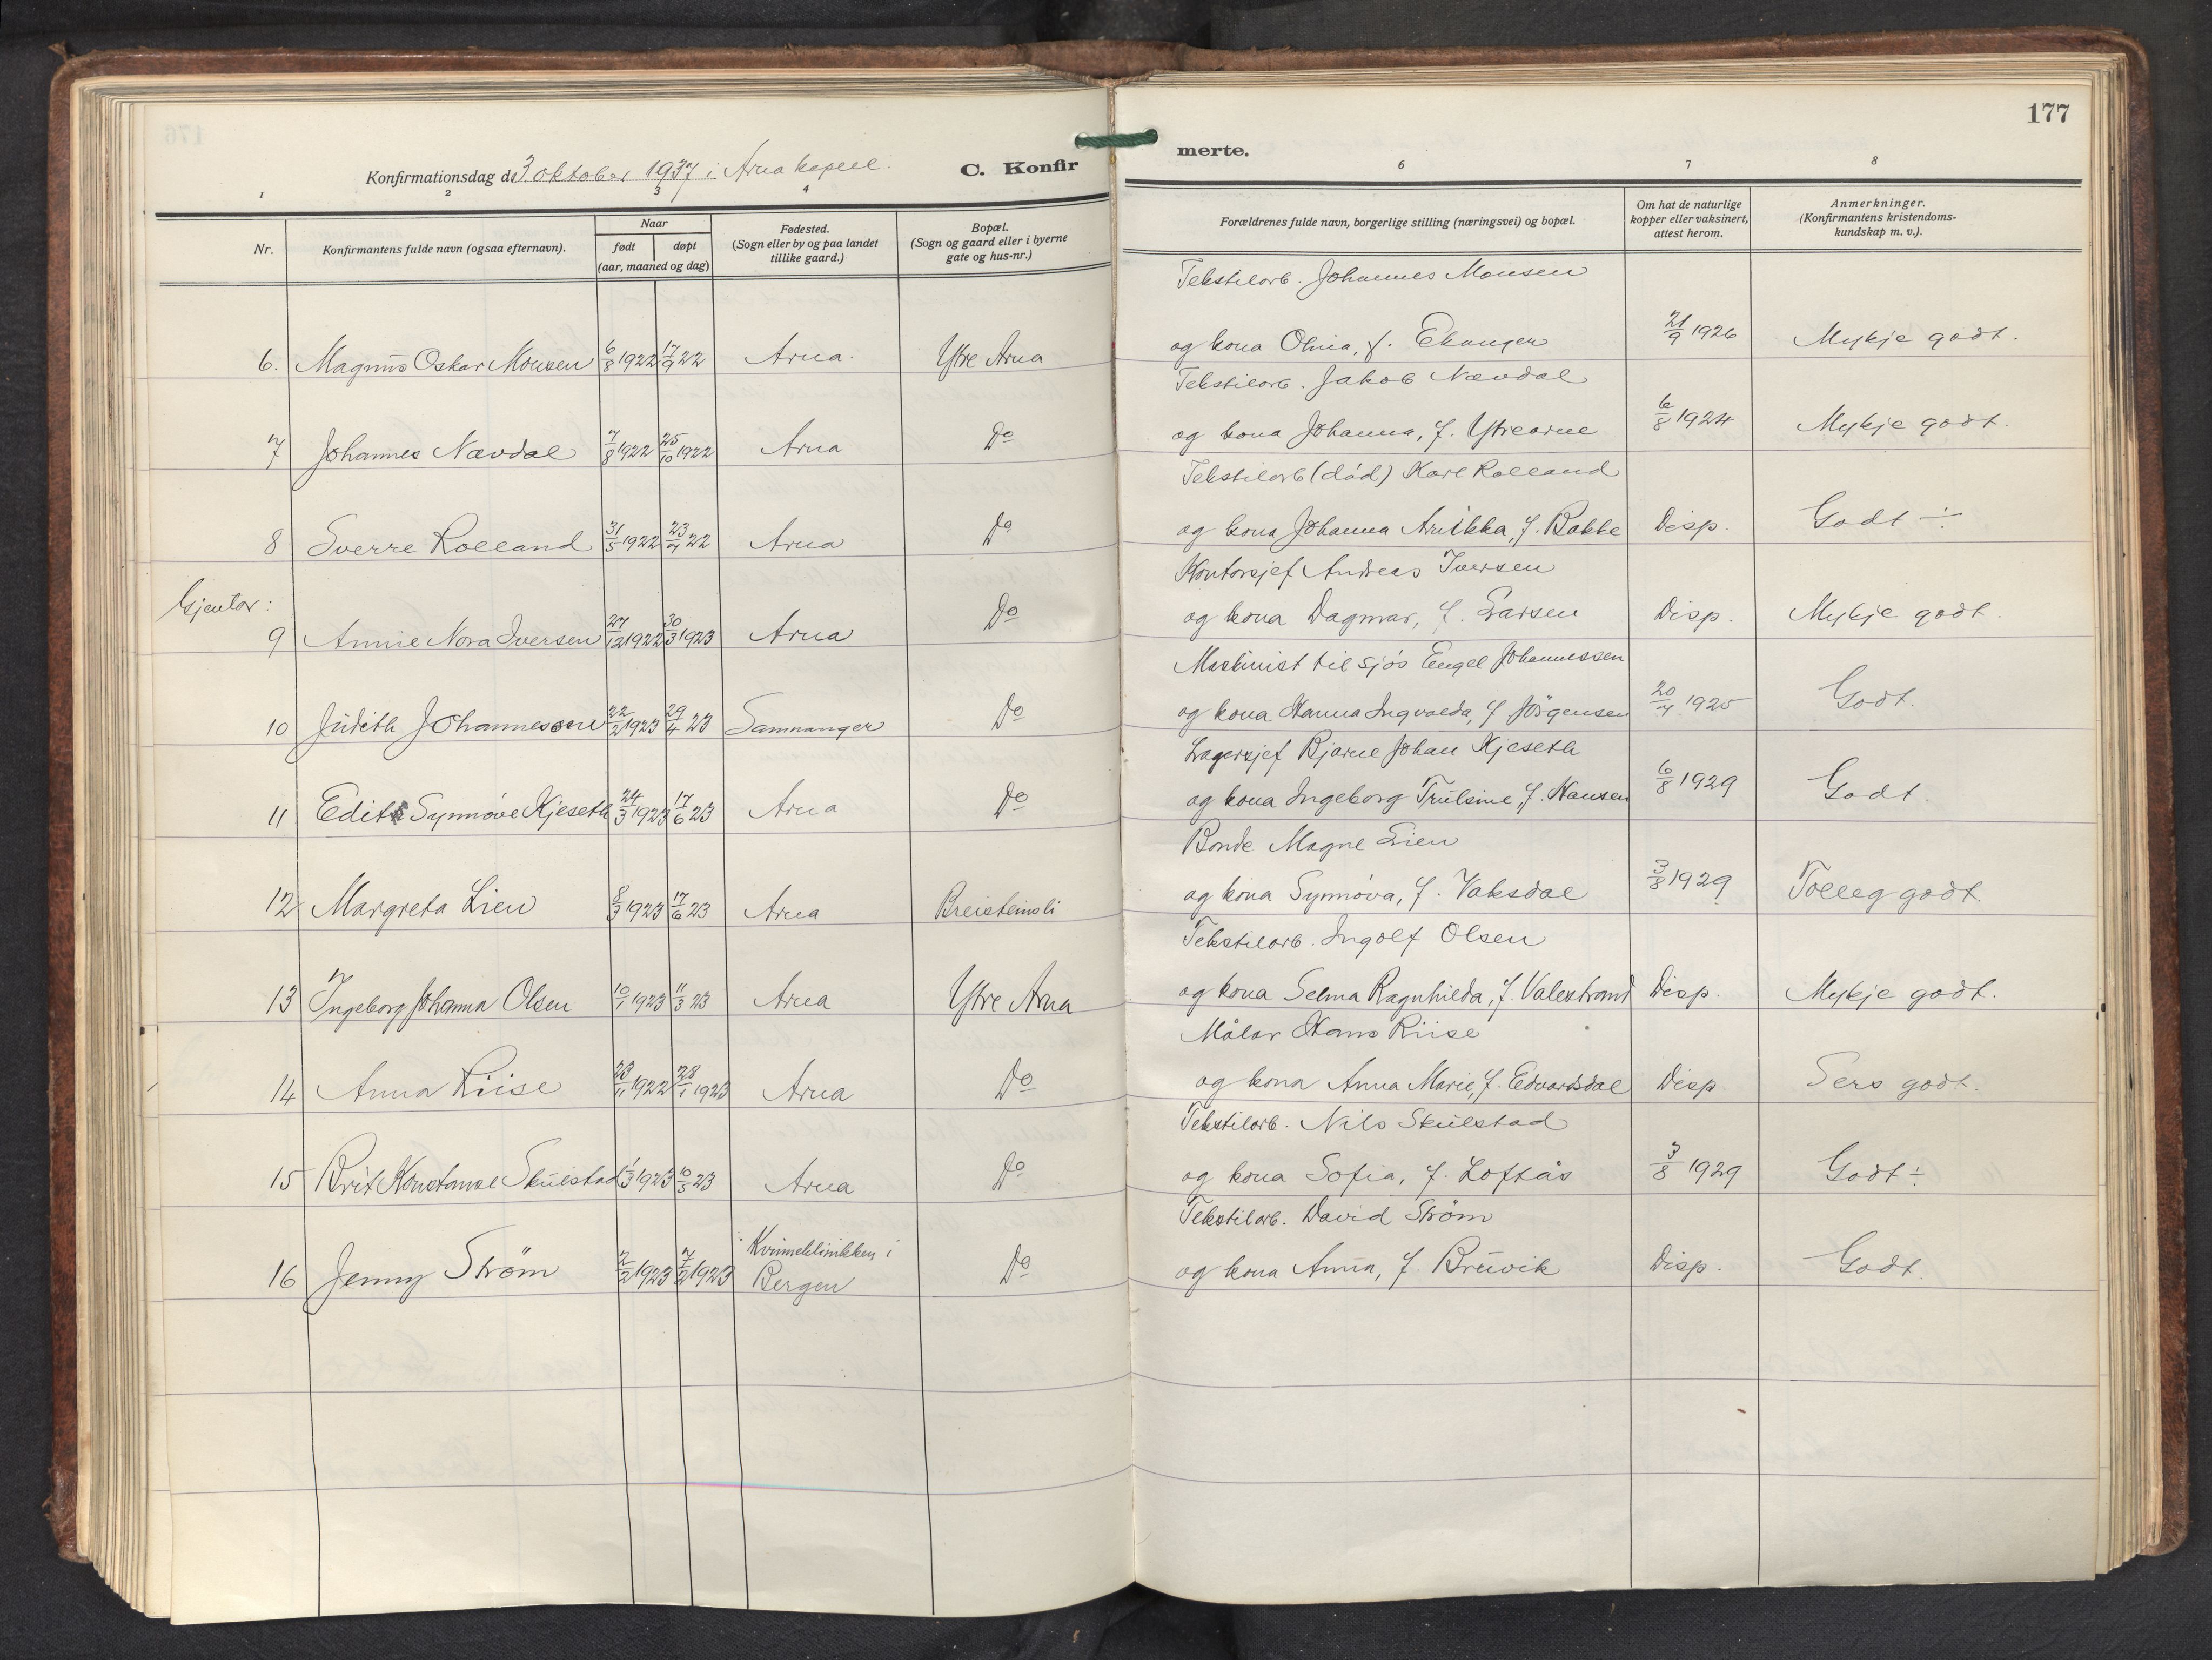 177
Konfirmationsdag d. 3 oktober 1937 i Arna kapell.
C. Konfirmerte.
1 2 3 4 6 7 8
Nr.
Konfirmantens fulde navn (ogsaa efternavn).
Naar
født døpt
(aar, maaned og dag)
Fødested.
(Sogn eller by og paa landet
tillike gaard.)
Bopæl.
(Sogn og gaard eller i byerne
gate og hus-nr.)
Forældrenes fulde navn, borgerlige stilling (næringsvei) og bopæl.
Om hat de naturlige
kopper eller vaksinert,
attest herom.
Anmerkninger.
(Konfirmantens kristendoms-
kundskap m. v.).
Tekstilarb. Johannes Monsen
6. Magnus Oskar Monsen 6/8 1922 17/9 22 Arna. Ytre Arna og kona Olina, f. Ekanger 21/9 1926 Mykje godt.
Tekstilarb. Jakob Nævdal
7 Johannes Nævdal 7/8 1922 25/10 1922 Arna Do og kona Johanna, f. Ytrearne 6/8 1924 Mykje godt.
Tekstilarb (død) Karl Rolland
8 Sverre Rolland 31/5 1922 23/7 22 Arna Do og kona Johanna Arikka, f. Bakke Disp. Godt ÷
Kontorsjef Andreas Iversen
Gjentor:
9 Annie Nora Iversen 27/12 1922 30/3 1923 Arna Do og kona Dagmar, f. Larsen Disp. Mykje godt.
Maskinist til sjøs Engel Johannessen
10 Judith Johannessen 22/2 1923 29/4 23 Samnanger Do og kona Hanna Ingvalda, f. Jörgensen 20/7 1925 Godt.
Lagersjef Bjarne Johan Kjeseth
11 Edith Synnöve Kjeseth 24/3 1923 17/6 23 Arna Do og kona Ingeborg Trulsine, f. Hansen 6/8 1929 Godt.
Bonde Magne Lien
12 Margreta Lien 8/3 1923 17/6 23 Arna Breisteinsli og kona Synnöva, f. Vaksdal 3/8 1929 Tolleg godt.
Tekstilarb. Ingolf Olsen
13 Ingeborg Johanna Olsen 10/1 1923 11/3 23 Arna Ytre Arna og kona Selma Ragnhilda, f. Valestrand Disp. Mykje godt.
Målar Hans Riise
14 Anna Riise 23/11 1922 28/1 1923 Arna Do og kona Anna Marie, f. Edvardsdal Disp. Sers godt.
Tekstilarb. Nils Skulstad
15 Brit Konstanse Skulstad 1/3 1923 10/5 23 Arna Do og kona Sofia, f. Loftås 3/8 1929 Godt ÷
Tekstilarb. David Strøm
Kvinneklinikken i
16 Jenny Strøm 2/2 1923 7/2 1923 Bergen Do og kona Anna, f. Bruvik Disp. Godt.